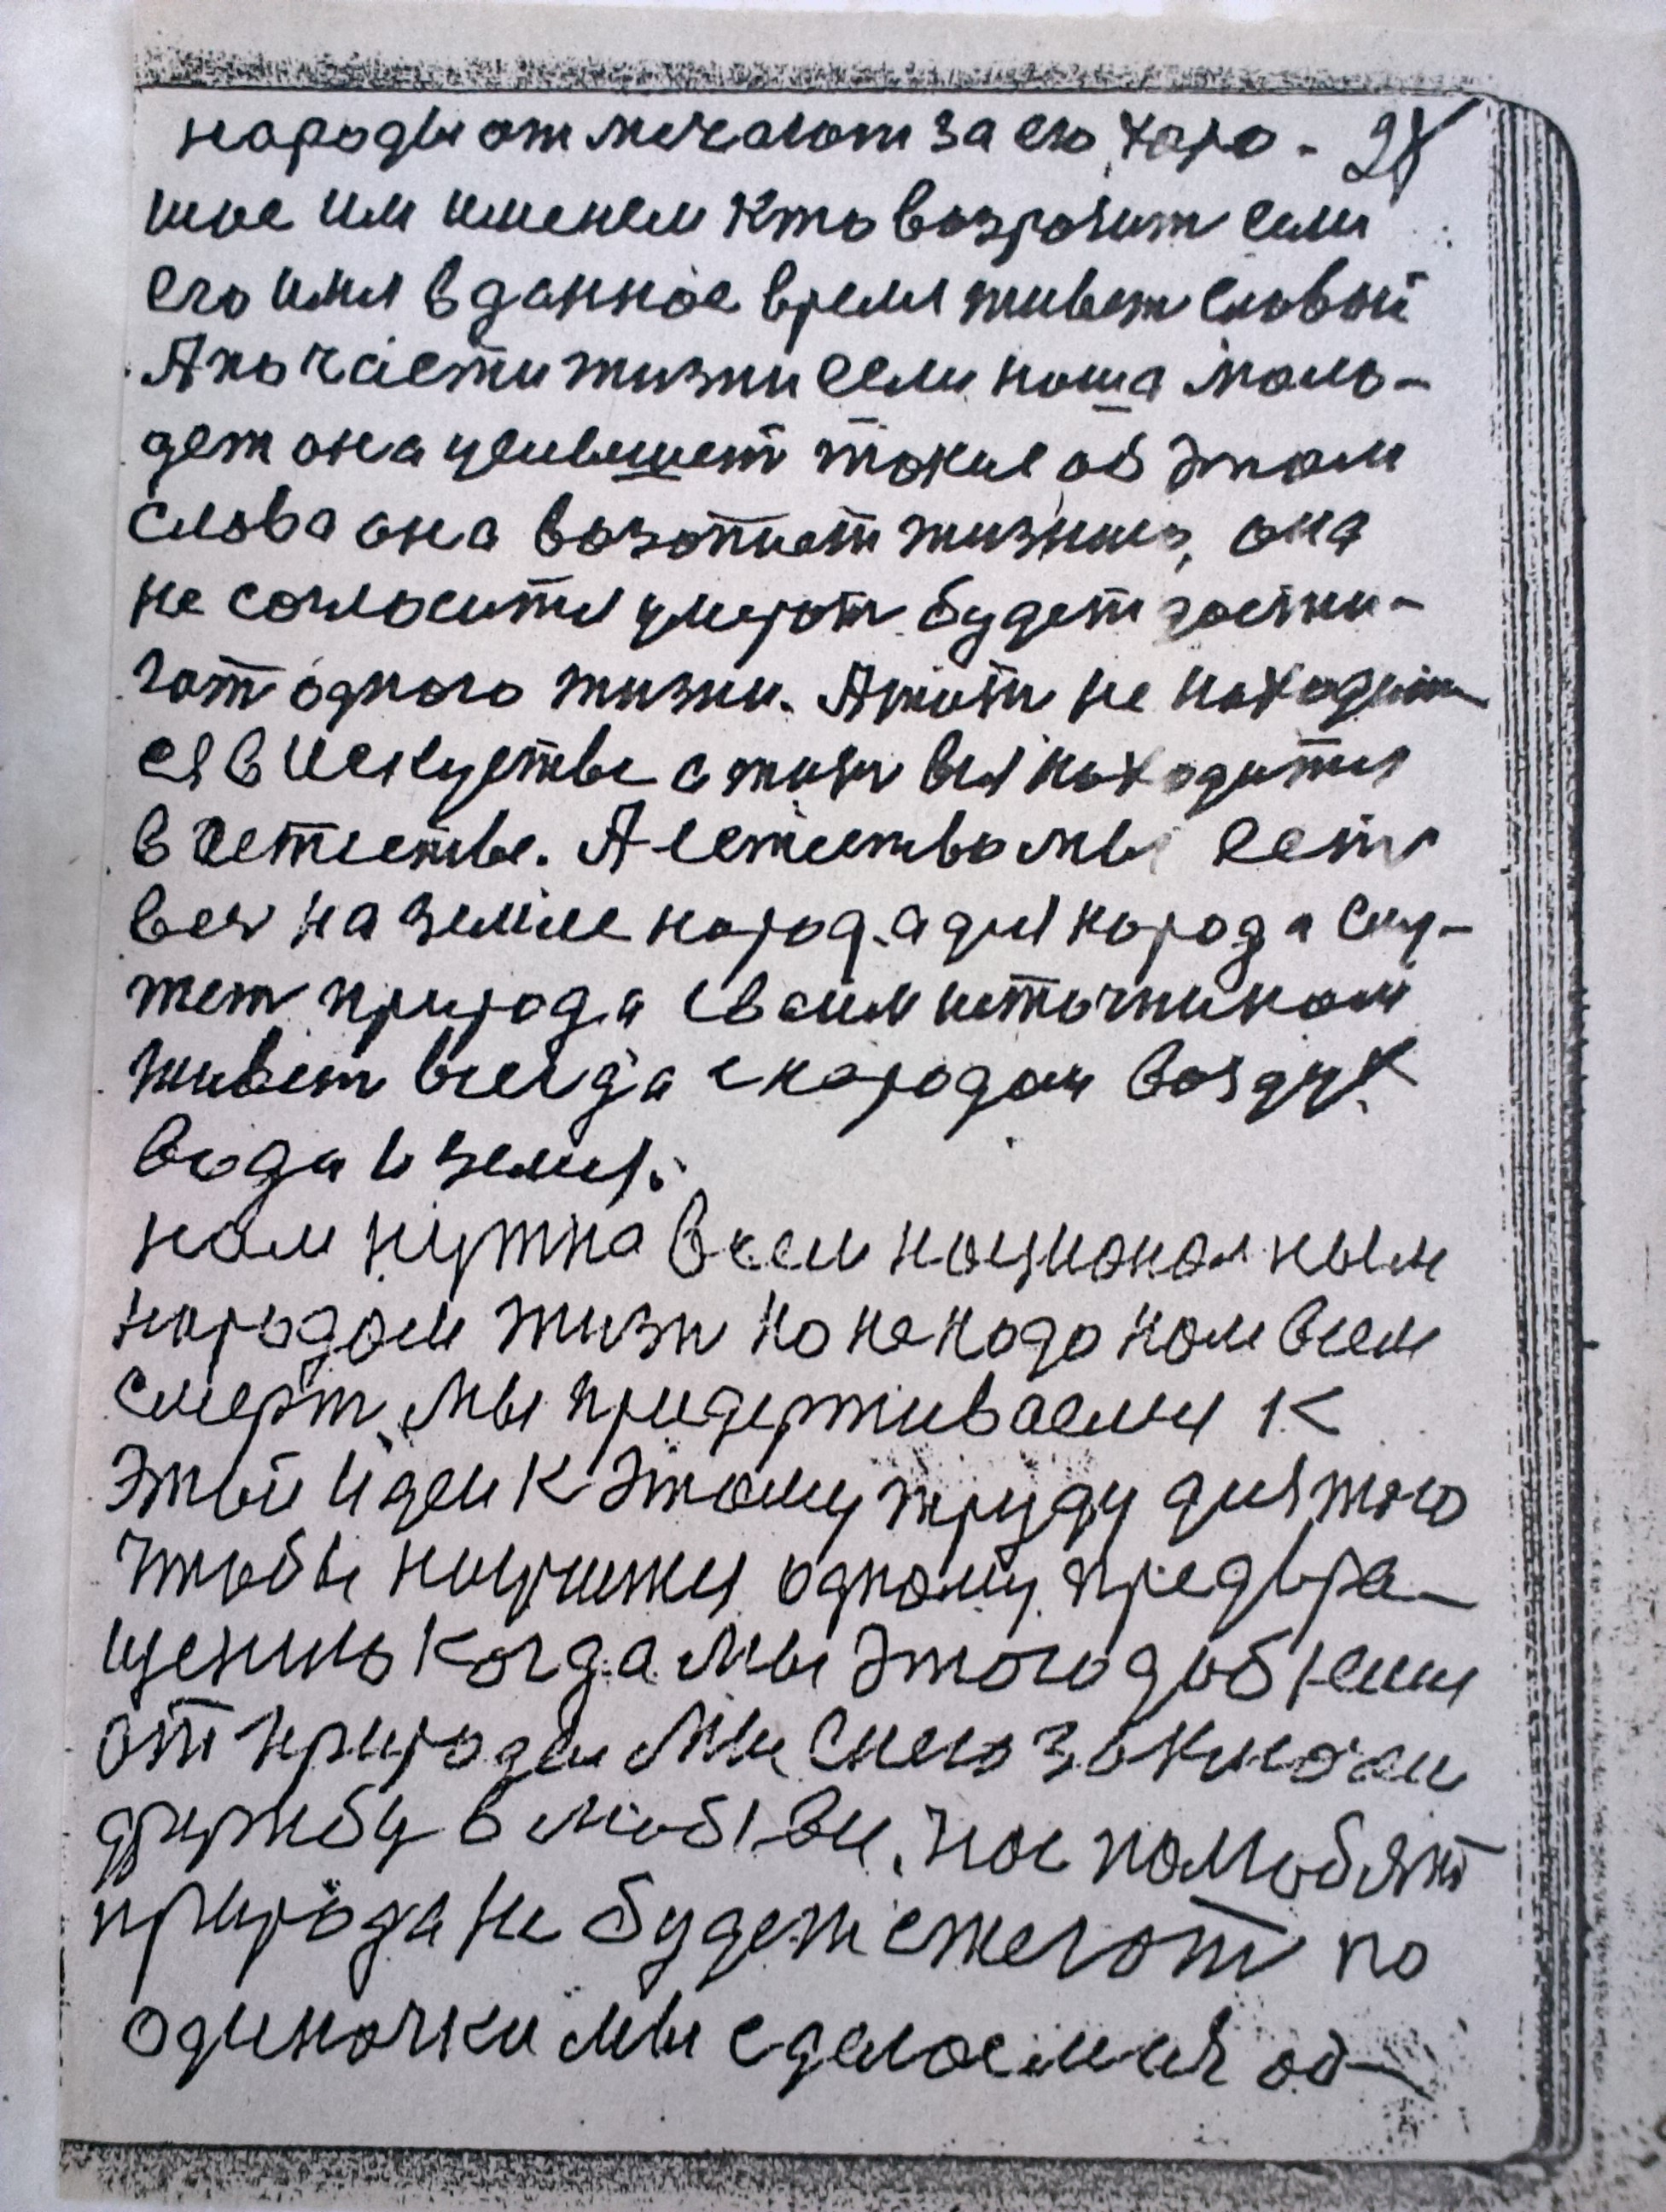 народы отмечают за его хоро- 28
шое им именем кто возрозит если
его имя в данное время живет словой
А по части жизни если наша моло-
деж она услишет такие об этом
слова она возотнет жизнию, она
не согласится умерат будет дости-
гат одного жизни. А жит не находит-
ся в искустве а жизн вся находится
в естестве. А естество мы есть
вся на земле народ, а для народа слу-
жет природа своим источником
живет всегда с народом воздух
вода и земля.
нам нужна всем национальным
народам жизн но не надо нам всем
смерт, мы придерживаемся к
этой идеи к этому труду для того
чтобы научится одному предвра-
щению когда мы этого добъемся
от природы мы с нею заключем
дружбу в любви, нас полюбят
природа не будет стегат по
одиночки мы сделаемся об-